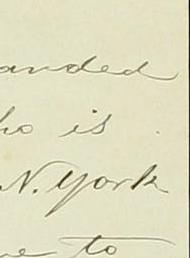 anded
ho is
N. York
e to